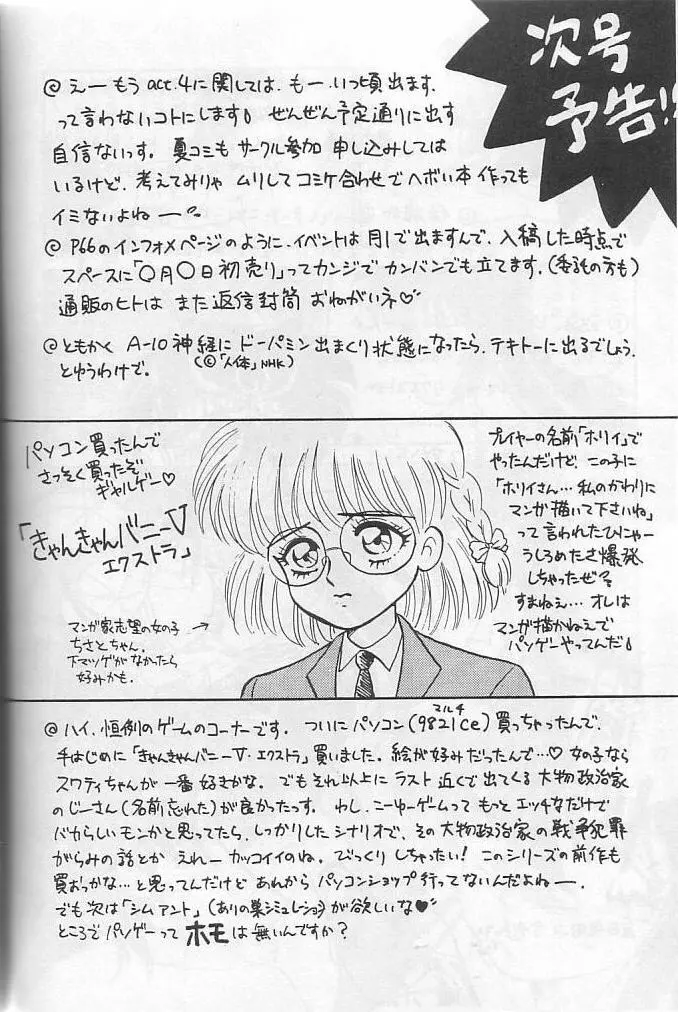 次号
予告!!
@ えー もう act.4に関しては、もー、いつ頃出ます、
って言わないコトにします。ぜんぜん予定通りに出す
自信ないっす。夏コミも サークル参加 申し込みしては
いるけど、考えてみりゃ ムリしてコミケ合わせで ヘボい本 作っても
イミないよねー
@ P66のインフォメページのように、イベントは 月1で出ますんで、入稿した時点で
スペースに「〇月〇日初売り」ってカンジでカンバンでも立てます。(委託の方も)
通販のヒトは また返信封筒 おねがいネ♡
@ともかく A-10神経に ドーパミン出まくり状態になったら、テキトーに出るでしょう。
(©「人体」NHK)
とゆうわけで。
パソコン買ったんで
さっそく買ったぞ
ギャルゲー♡
「きゃんきゃんバニーV
エクストラ」
マンガ家志望の女の子 →
ちさとちゃん。
下マツゲがなかったら
好みかも。
プレイヤーの名前「ホリイ」で
やったんだけど、この子に
「ホリイさん…私のかわりに
マンガ描いて下さいね」
って言われたひにゃー
うしろめたさ爆発
しちゃったぜ
すまねえ…オレは
マンガ描かねえで
パソゲーやってんだ
@ハイ、恒例のゲームのコーナーです。ついにパソコン(9821Ce)買っちゃったんで、
マルチ
手はじめに「きゃんきゃんバニーV・エクストラ」買いました。絵が好みだったんで…♡ 女の子なら
スワティちゃんが一番好きかな。でもそれ以上に ラスト近くで出てくる 大物政治家
のじーさん(名前忘れた)が良かったっす。わし、こーゆーゲームって もっと エッチなだけで
バカらしいモンかと思ってたら、しっかりしたシナリオで、その大物政治家の戦争犯罪
がらみの話とか えれー カッコイイのね。びっくりしちゃったい! このシリーズの前作も
買おっかな…と思ってんだけど あれから パソコンショップ行ってないんだよねー。
でも次は「シムアント」(ありの巣シミュレーション)が欲しいな♥
ところでパソゲーって ホモは無いんですか?